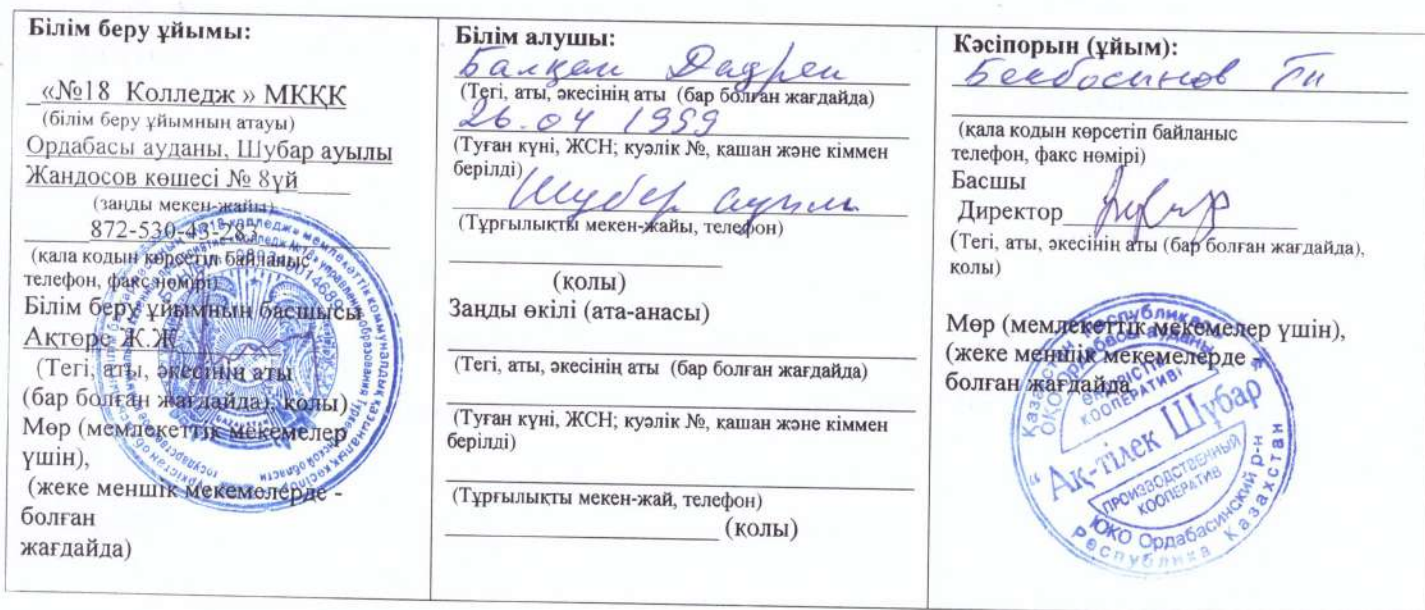 Білім беру ұйымы:
«№18 Колледж » МКҚК
(білім беру ұйымның атауы)
Ордабасы ауданы, Шубар ауылы
Жандосов көшесі № 8үй
(заңды мекен-жайы)
872-530-43-283
(қала кодын көрсетіп байланыс
телефон, факс нөмірі)
Білім беру ұйымның басшысы
Ақтөре Ж.Ж
(Тегі, аты, әкесінің аты
(бар болған жағдайда), қолы)
Мөр (мемлекеттік мекемелер
үшін),
(жеке меншік мекемелерде -
болған
жағдайда)
Білім алушы:
(Тегі, аты, әкесінің аты (бар болған жағдайда)
26.04 1999
(Туған күні, ЖСН; куәлік №, қашан және кіммен
берілді)
Шубар ауылы
(Тұрғылықты мекен-жайы, телефон)
(қолы)
Заңды өкілі (ата-анасы)
(Тегі, аты, әкесінің аты (бар болған жағдайда)
(Туған күні, ЖСН; куәлік №, қашан және кіммен
берілді)
(Тұрғылықты мекен-жай, телефон)
(қолы)
Кәсіпорын (ұйым):
(қала кодын көрсетіп байланыс
телефон, факс нөмірі)
Басшы
Директор
(Тегі, аты, әкесінің аты (бар болған жағдайда),
қолы)
Мөр (мемлекеттік мекемелер үшін),
(жеке меншік мекемелерде -
болған жағдайда
Қазақстан Республикасы
ОҚО Ордабасы ауданы
ӨНДІРІСТІК
КООПЕРАТИВІ
"Ақ-тілек Шұбар"
ПРОИЗВОДСТВЕННЫЙ
КООПЕРАТИВ
ЮКО Ордабасинский р-н
Республика Казахстан